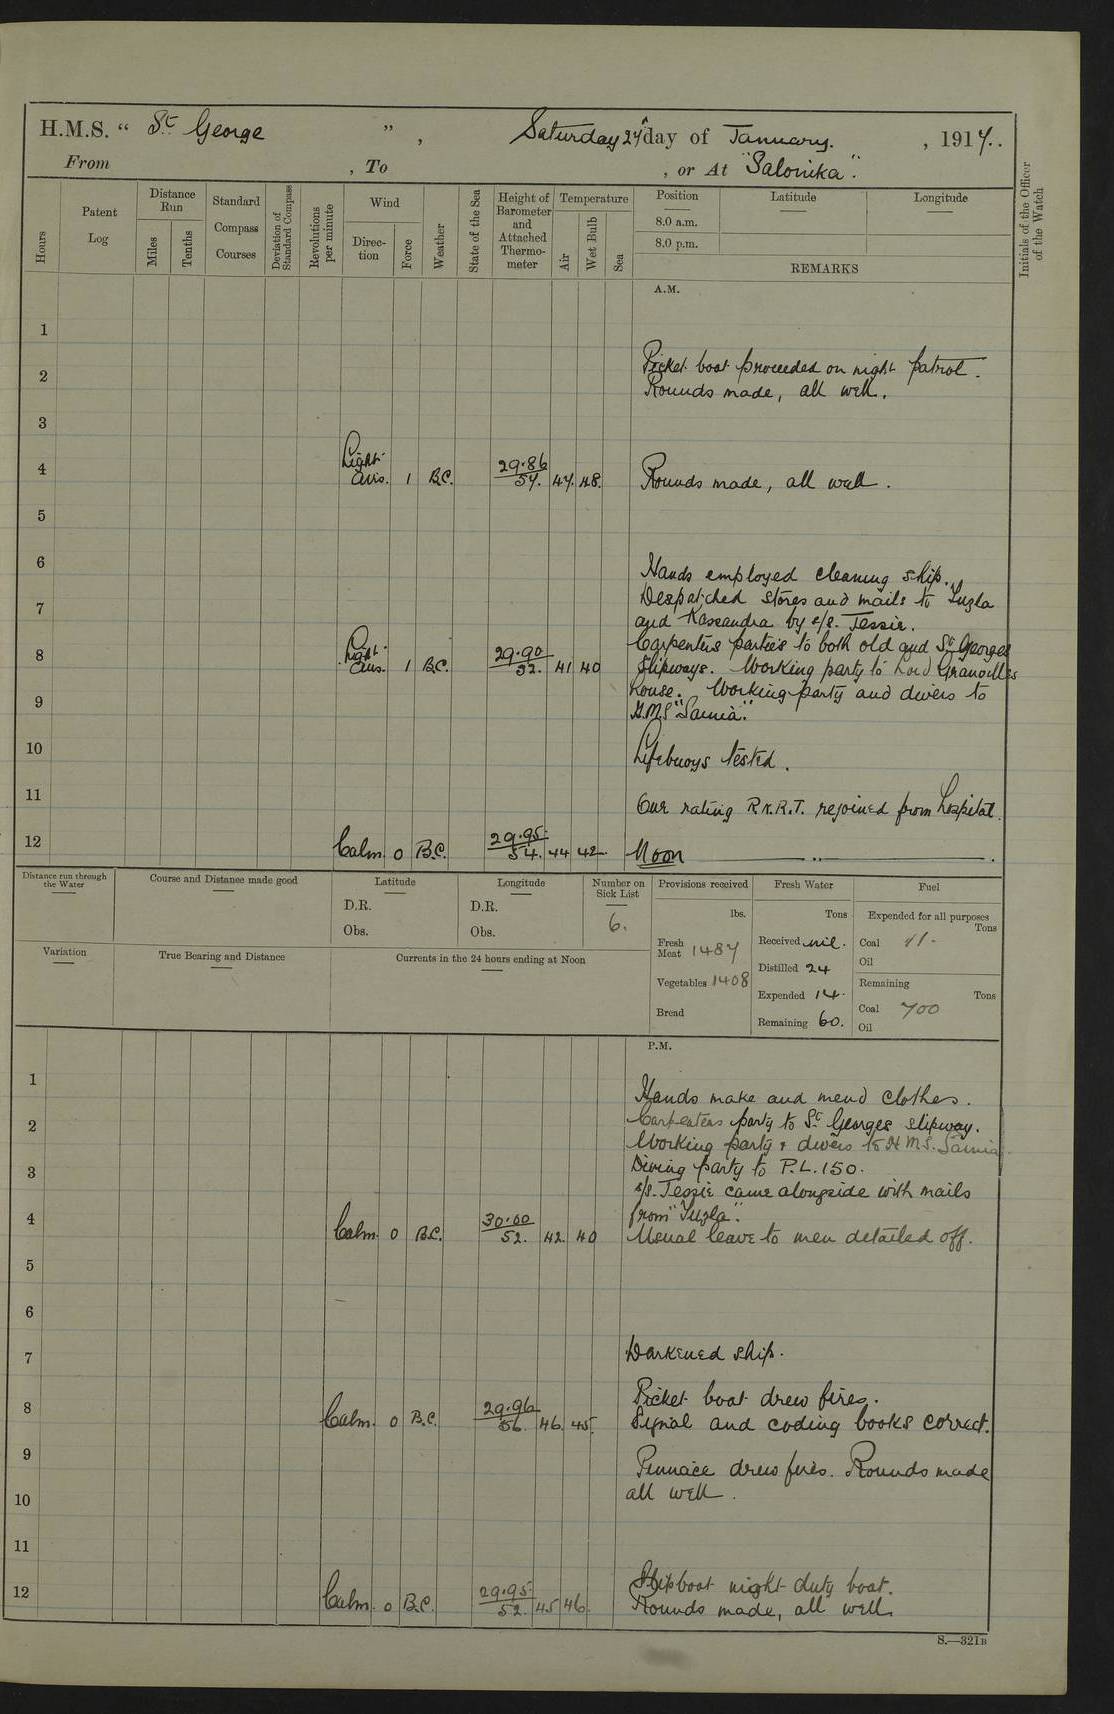 H.M.S. " St George " , Saturday 27th day of January. , 1917.
From , To , or At "Salonika".
Hours
Patent Log
Distance Run
Miles
Tenths
Standard Compass Courses
Deviation of Standard Compass
Revolutions per minute
Wind
Direc-tion
Force
Weather
State of the Sea
Height of Barometer and Attached Thermo-meter
Temperature
Air
Wet Bulb
Sea
Position
Latitude
Longitude
8.0 a.m.
8.0 p.m.
REMARKS
Initials of the Officer of the Watch
A.M.
1
Picket boat proceeded on night patrol.
2
Rounds made, all well.
3
4 Light airs. 1 B.C. 29.86 57. 47. 48. Rounds made, all well.
5
6
Hands employed cleaning ship.
7 Despatched stores and mails to Tuzla
and Kassandra by s/s. Tessie.
Carpenters parties to both old and St Georges
8 Light airs. 1 B.C. 29.90 52. 41 40 slipways. Working party to Lord Granvilles
house. Working party and divers to
9 H.M.S "Sarnia".
10 Lifebuoys tested.
11 One rating R.N.R.T. rejoined from hospital.
12 Calm. 0 B.C. 29.95 54. 44 42 Noon
Distance run through the Water
Course and Distance made good
Latitude
D.R.
Obs.
Longitude
D.R.
Obs.
Number on Sick List
6.
Provisions received
lbs.
Fresh Meat 1487
Vegetables 1408
Bread
Fresh Water
Tons
Received nil.
Distilled 24
Expended 14.
Remaining 60.
Fuel
Expended for all purposes
Tons
Coal 11.
Oil
Remaining
Tons
Coal 700
Oil
Variation
True Bearing and Distance
Currents in the 24 hours ending at Noon
P.M.
1 Hands make and mend clothes.
Carpenters party to St Georges slipway.
2 Working party & divers to H.M.S. Sarnia.
3 Diving party to P.L.150.
s/s. Tessie came alongside with mails
from "Tuzla".
4 Calm. 0 B.C. 30.00 52. 42. 40 Usual leave to men detailed off.
5
6
7 Darkened ship.
Picket boat drew fires.
8 Calm. 0 B.C. 29.96 56. 46. 45. Signal and coding books correct.
9
Pinnace drew fires. Rounds made
10 all well.
11
Skipboat night duty boat.
12 Calm. 0 B.C. 29.95 52. 45 46. Rounds made, all well.
S.—321B